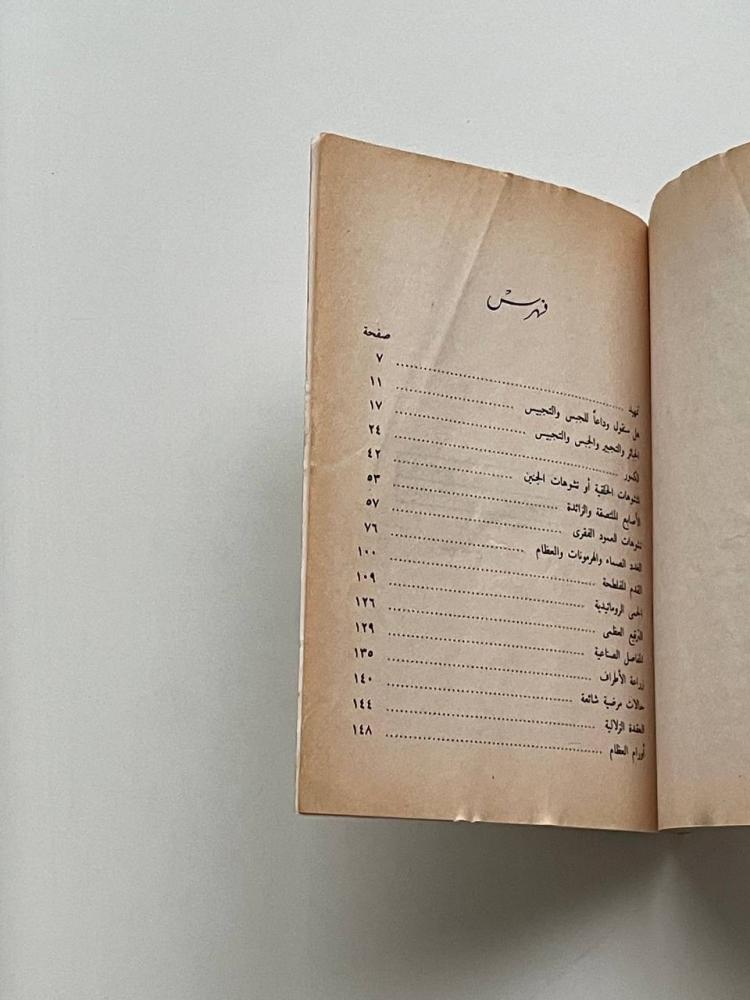 فهرس
صفحة
تمهيد ................ ٧
هل سنقول وداعاً للجبس والتجبيس ................ ١١
الجبائر والتجبير والجبس والتجبيس ................ ١٧
الكسور ................ ٢٤
التشوهات الخلقية أو تشوهات الجنين ................ ٤٢
الأصابع الملتصقة والزائدة ................ ٥٣
تشوهات العمود الفقرى ................ ٥٧
الغدد الصماء والهرمونات والعظام ................ ٧٦
القدم المفلطحة ................ ١٠٠
الحمى الروماتيدية ................ ١٠٩
الترقيع العظمى ................ ١٢٦
المفاصل الصناعية ................ ١٢٩
زراعة الأطراف ................ ١٣٥
حالات مرضية شائعة ................ ١٤٠
العقدة الزلالية ................ ١٤٤
أورام العظام ................ ١٤٨